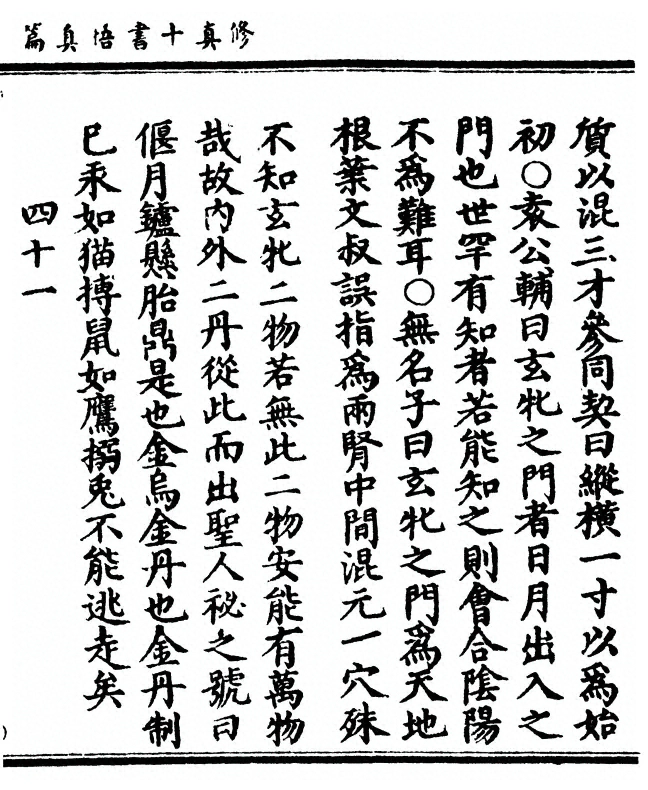 修真十書悟真篇
質以混三才參同契曰縱横一寸以為始
初○袁公輔曰玄牝之門者日月出入之
門也世罕有知者若能知之則會合陰陽
不為難耳○無名子曰玄牝之門為天地
根葉文叔誤指為兩腎中間混元一穴殊
不知玄牝二物若無此二物安能有萬物
哉故内外二丹從此而出聖人祕之號曰
偃月鑪懸胎鼎是也金烏金丹也金丹制
已汞如猫捕鼠如鷹搦兎不能逃走矣
四十一